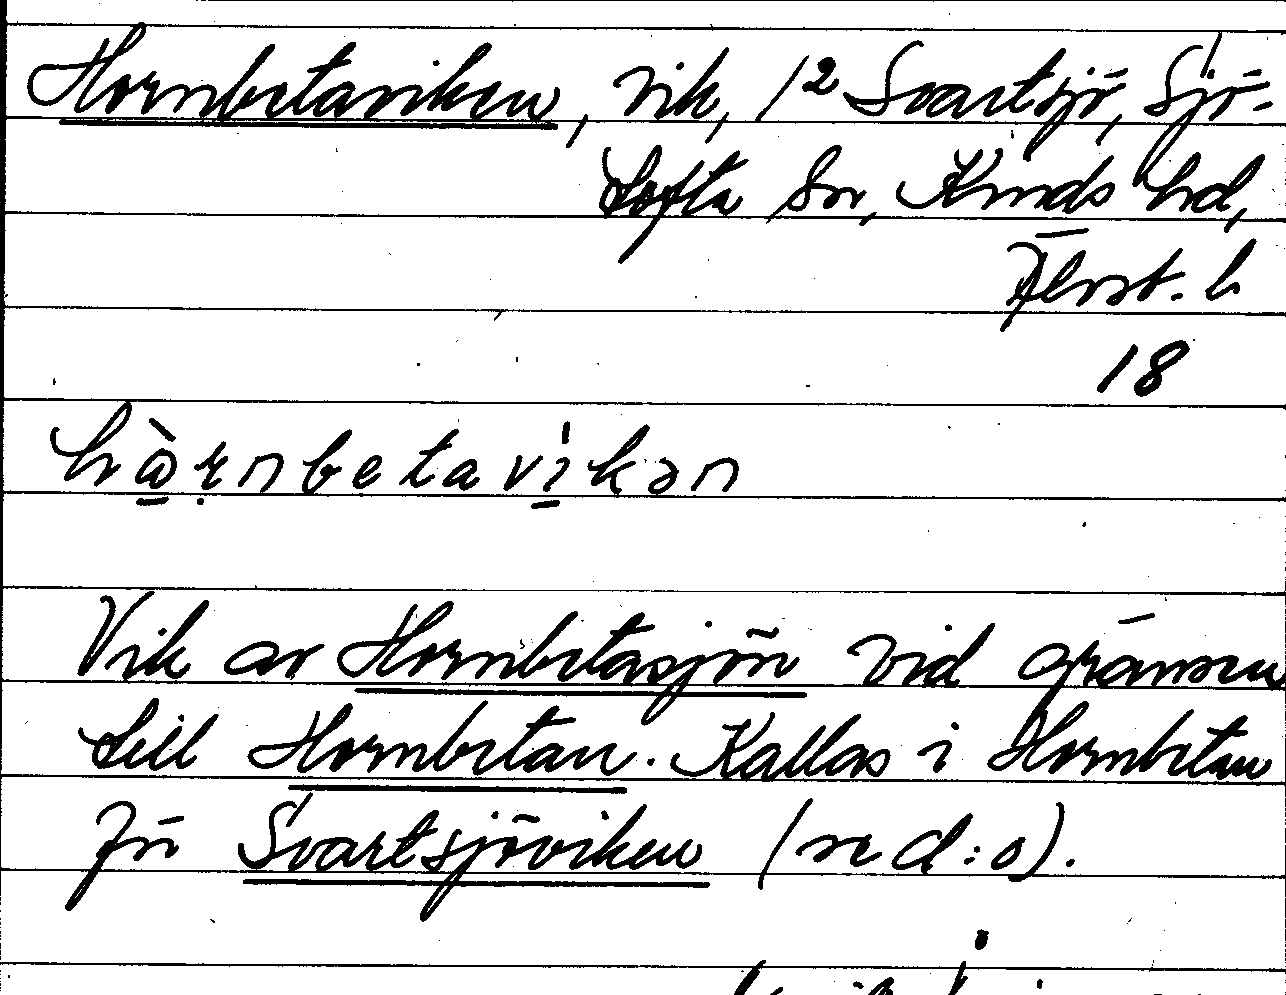 Hornbetaviken, vik, 1² Svartsjö, Sjö-
tofta sn, Kinds hd,
Älvsb. l
18
hὼrnbetavikən
Vik av Hornbetasjön vid gränsen
till Hornbetan. Kallas i Hornbetan
för Svartsjöviken (se d:o).